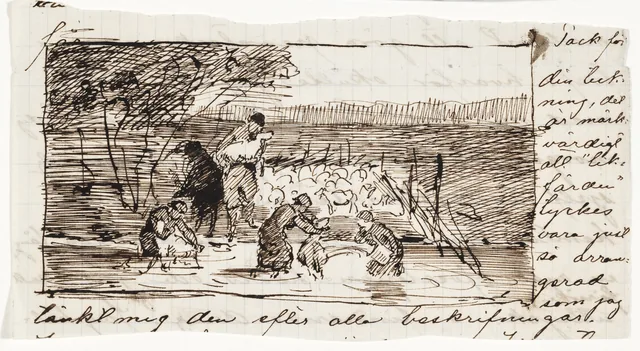 Tack för
din teck-
ning, det
är märk-
värdigt
att "lik-
färden"
tyckes
vara just
så arran-
gerad
som jag
tänkt mig den efter alla beskrifningar.